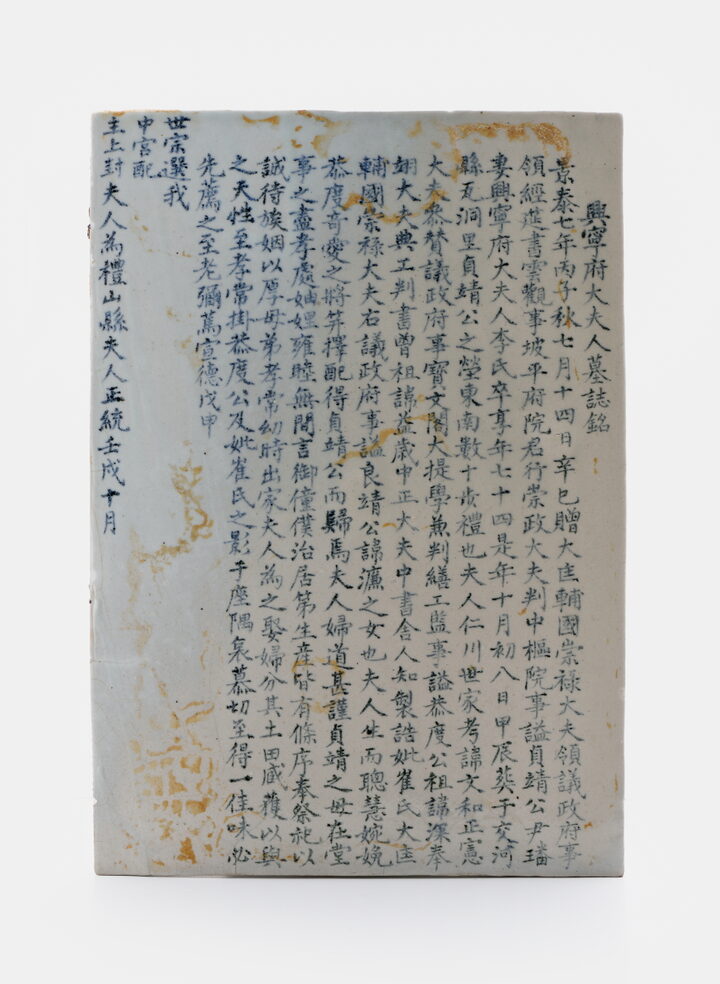 興寧府大夫人墓誌銘
景泰七年丙子秋七月十四日辛巳贈大匡輔國崇祿大夫領議政府事
領經筵書雲觀事坡平府院君行崇政大夫判中樞院事謚貞靖公尹璠
妻興寧府大夫人李氏卒享年七十四是年十月初八日甲辰葬于交河
縣瓦洞里貞靖公之塋東南數十步禮也夫人仁川世家考諱文和正憲
大夫叅贊議政府事寶文閣大提學兼判繕工監事謚恭度公祖諱深奉
翊大夫典工判書曾祖諱益歲中正大夫中書舍人知製誥妣崔氏大匡
輔國崇祿大夫右議政府事謚良靖公諱濂之女也夫人生而聰慧婉娩
恭度奇愛之將笄擇配得貞靖公而歸焉夫人婦道甚謹貞靖之母在堂
事之盡孝處妯娌雍睦無間言御僮僕治居第生産皆有條序奉祭祀以
誠待族姻以厚母弟孝常幼時出家夫人為之娶婦分其土田臧獲以與
之天性至孝常掛恭度公及妣崔氏之影于座隅哀慕切至得一佳味必
先薦之至老彌篤宣德戊申
世宗選我
中宮配
主上封夫人為禮山縣夫人正統壬戌十月